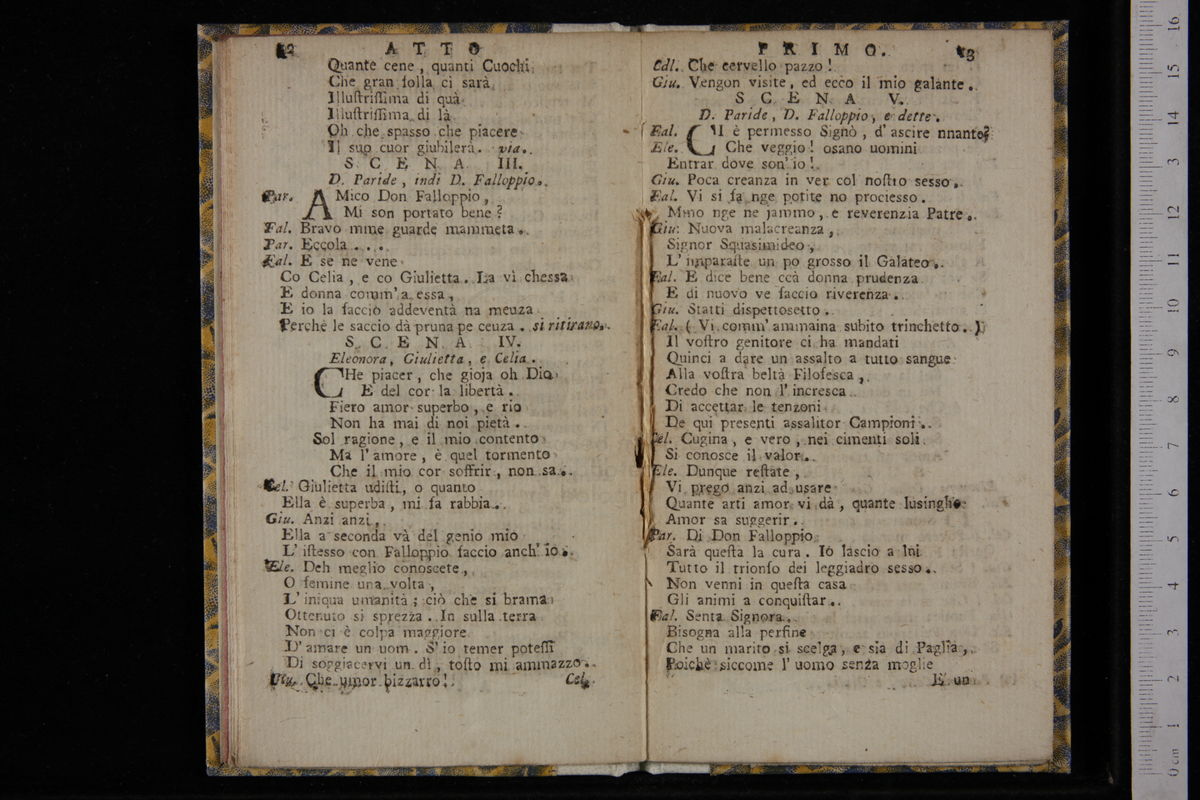 12 ATTO
Quante cene, quanti Cuochi
Che gran folla ci sarà
Illuſtriſſima di quà
Illuſtriſſima di là
Oh che spasso che piacere
Il suo cuor giubilerà. via.
SCENA III.
D. Paride, indi D. Falloppio.
Par. AMico Don Falloppio,
Mi son portato bene?
Fal. Bravo mme guarde mammeta.
Par. Eccola ....
Fal. E se ne vene
Co Celia, e co Giulietta. La vì chessa
E donna comm' a essa,
E io la faccio addeventà na meuza
Perchè le saccio dà pruna pe ceuza. si ritirano.
SCENA IV.
Eleonora, Giulietta, e Celia.
CHe piacer, che gioja oh Dio
E del cor la libertà.
Fiero amor superbo, e rio
Non ha mai di noi pietà.
Sol ragione, e il mio contento
Ma l' amore, è quel tormento
Che il mio cor soffrir, non sa.
Cel. Giulietta udiſti, o quanto
Ella è superba, mi fa rabbia.
Giu. Anzi anzi,
Ella a seconda và del genio mio
L' iſtesso con Falloppio faccio anch' io.
Ele. Deh meglio conoscete,
O femine una volta,
L' iniqua umanità; ciò che si brama
Ottenuto si sprezza. In sulla terra
Non ci è colpa maggiore
D' amare un uom. S' io temer poteſſi
Di soggiacervi un dì, toſto mi ammazzo.
Giu. Che umor bizzarro!
Cel.
PRIMO. 13
Cel. Che cervello pazzo!
Giu. Vengon visite, ed ecco il mio galante.
SCENA V.
D. Paride, D. Falloppio, e dette.
Fal. CI è permesso Signò, d' ascire nnanto?
Ele. Che veggio! osano uomini
Entrar dove son' io!
Giu. Poca creanza in ver col noſtro sesso.
Fal. Vi si fa nge potite no prociesso.
Mmo nge ne jammo, e reverenzia Patre.
Giu. Nuova malacreanza,
Signor Squasimideo,
L' imparaſte un po grosso il Galateo.
Fal. E dice bene ccà donna prudenza
E di nuovo ve faccio riverenza.
Giu. Statti dispettosetto.
Fal. (Vi comm' ammaina subito trinchetto.)
Il voſtro genitore ci ha mandati
Quinci a dare un assalto a tutto sangue
Alla voſtra beltà Filofesca,
Credo che non l' incresca
Di accettar le tenzoni
De qui presenti assalitor Campioni.
Cel. Cugina, e vero, nei cimenti soli
Si conosce il valor.
Ele. Dunque reſtate,
Vi prego anzi ad usare
Quante arti amor vi dà, quante lusinghe
Amor sa suggerir.
Par. Di Don Falloppio
Sarà queſta la cura. Io lascio a lni
Tutto il trionfo dei leggiadro sesso.
Non venni in queſta casa
Gli animi a conquiſtar.
Fal. Senta Signora.
Bisogna alla perfine
Che un marito si scelga, e sia di Paglia,
Poichè siccome l' uomo senza moglie
E un
0 cm 1 2 3 4 5 6 7 8 9 10 11 12 13 14 15 16